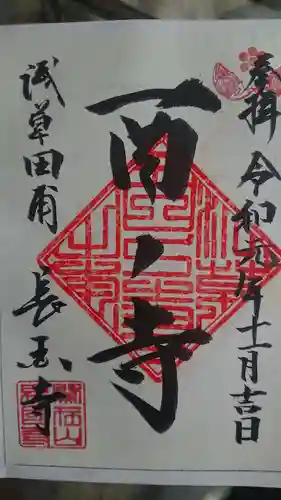 奉拝 令和元年十一月吉日
酉ノ寺
浅草田甫
長国寺